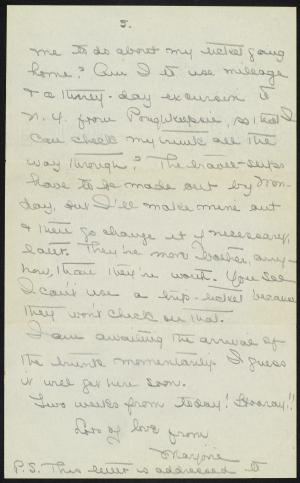 5.
me to do about my ticket going
home? Am I to use mileage
& a thirty-day excursion to
N.Y. from Poughkeepsie, so that I
can check my trunk all the
way through? The travel-slips
have to be made out by Mon-
day, but I'll make mine out
& then go change it if necessary,
later. They're more bother, any-
how, than they're worth. You see
I can't use a trip-ticket because
they won't check on that.
I am awaiting the arrival of
the trunk momentarily. I guess
it will get here soon.
Two weeks from today! Hooray!!
Lots of love from
Marjorie
P.S. This letter is addressed to